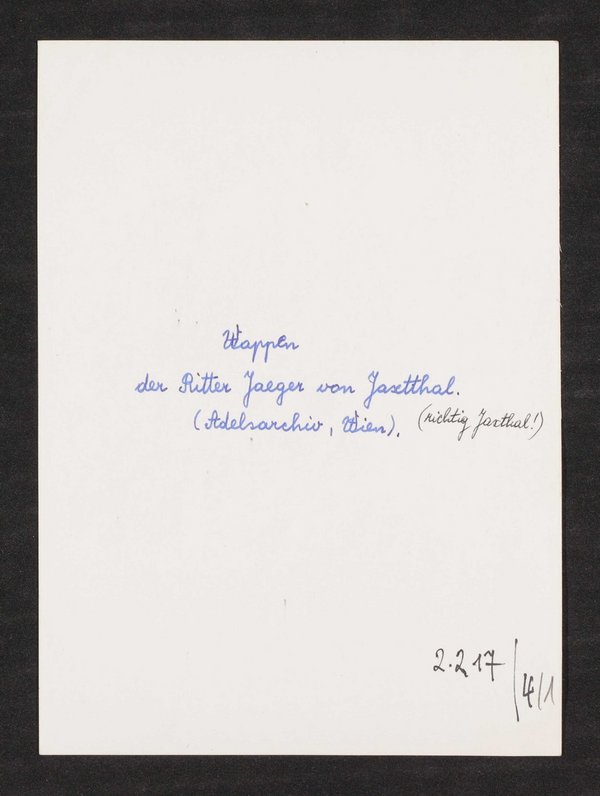 Wappen
der Ritter Jaeger von Jaxtthal.
(Adelsarchiv, Wien).
(richtig Jaxthal!)
2.2.17/4/1